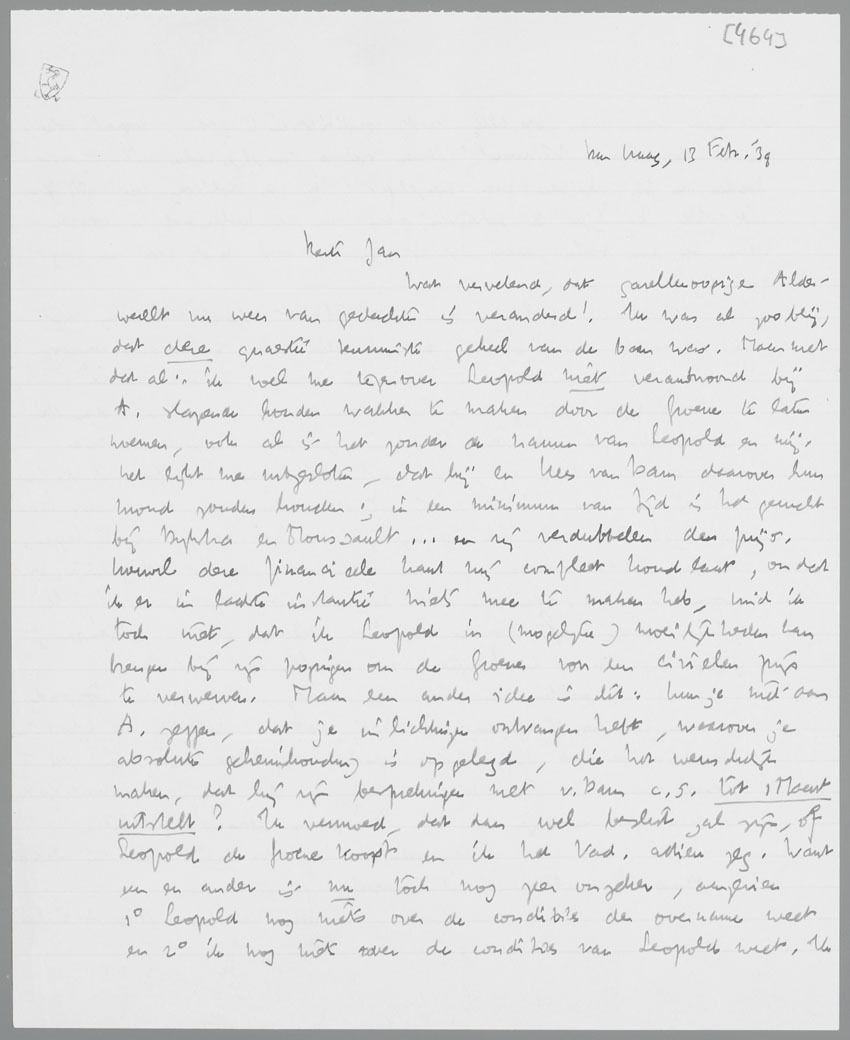 [464]
Den Haag, 13 Febr. '39
Beste Jan
Wat vervelend, dat Alder-
werelt nu weer van gedachten is veranderd! Ik was al zoo blij,
dat deze quaestie tenminste geheel van de baan was. Maar met
dat al: ik voel me tegenover Leopold niet verantwoord bij
A. slapende honden wakker te maken door de Groene te laten
noemen, ook al is het zonder de namen van Leopold en mij.
Het lijkt me uitgesloten, dat hij en Kees van Dam daarover hun
mond zouden houden; in een minimum van tijd is het gemeld
bij Dijkstra en Moussault... en zij verdubbelen den prijs.
Hoewel deze financieele kant mij compleet koud laat, omdat
ik er in laatste instantie niets mee te maken heb, vind ik
toch niet, dat ik Leopold in (mogelijke) moeilijkheden kan
brengen bij zijn pogingen om de Groene voor een civielen prijs
te verwerven. Maar een ander idee is dit: kun je niet aan
A. zeggen, dat je inlichtingen ontvangen hebt, waarover je
absolute geheimhouding is opgelegd, die het wenschelijk
maken, dat hij zijn besprekingen met v. Dam c.s. tot 1 Maart
uitstelt? Ik vermoed, dat dan wel beslist zal zijn, of
Leopold de Groene koopt en ik het Vad. adieu zeg. Want
een en ander is nu toch nog zeer onzeker, aangezien
1° Leopold nog niets over de condities der overname weet
en 2° ik nog niets over de condities van Leopold weet. Ik